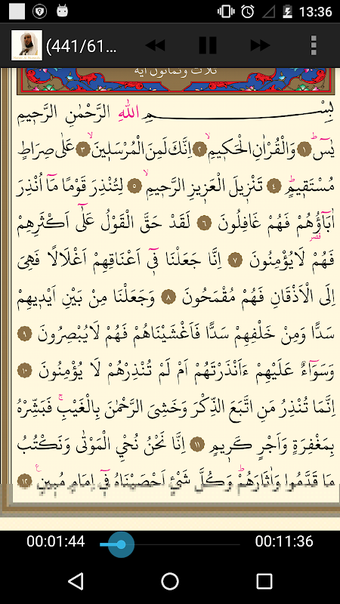 13:36
(441/61...
ثلاث وثمانون آية
بِسْمِ اللهِ الرَّحْمٰنِ الرَّحِيمِ
يٰسٓ ۚ ﴿١﴾ وَالْقُرْاٰنِ الْحَكِيمِ ۙ ﴿٢﴾ اِنَّكَ لَمِنَ الْمُرْسَلِينَ ۙ ﴿٣﴾ عَلٰى صِرَاطٍ
مُسْتَقِيمٍ ۜ ﴿٤﴾ تَنْزِيلَ الْعَزِيزِ الرَّحِيمِ ۙ ﴿٥﴾ لِتُنْذِرَ قَوْمًا مَٓا اُنْذِرَ
اٰبَٓاؤُ۬هُمْ فَهُمْ غَافِلُونَ ﴿٦﴾ لَقَدْ حَقَّ الْقَوْلُ عَلٰٓى اَكْثَرِهِمْ
فَهُمْ لَا يُؤْمِنُونَ ﴿٧﴾ اِنَّا جَعَلْنَا فِٓي اَعْنَاقِهِمْ اَغْلَالًا فَهِيَ
اِلَى الْاَذْقَانِ فَهُمْ مُقْمَحُونَ ﴿٨﴾ وَجَعَلْنَا مِنْ بَيْنِ اَيْدِيهِمْ
سَدًّا وَمِنْ خَلْفِهِمْ سَدًّا فَاَغْشَيْنَاهُمْ فَهُمْ لَا يُبْصِرُونَ ﴿٩﴾
وَسَوَٓاءٌ عَلَيْهِمْ ءَاَنْذَرْتَهُمْ اَمْ لَمْ تُنْذِرْهُمْ لَا يُؤْمِنُونَ ﴿١٠﴾
اِنَّمَا تُنْذِرُ مَنِ اتَّبَعَ الذِّكْرَ وَخَشِيَ الرَّحْمٰنَ بِالْغَيْبِ ۚ فَبَشِّرْهُ
بِمَغْفِرَةٍ وَاَجْرٍ كَرِيمٍ ﴿١١﴾ اِنَّا نَحْنُ نُحْيِ الْمَوْتٰى وَنَكْتُبُ
مَا قَدَّمُوا وَاٰثَارَهُمْ ۜ وَكُلَّ شَيْءٍ اَحْصَيْنَاهُ فِٓي اِمَامٍ مُبِينٍ ۟ ﴿١٢﴾
00:01:44 00:11:36